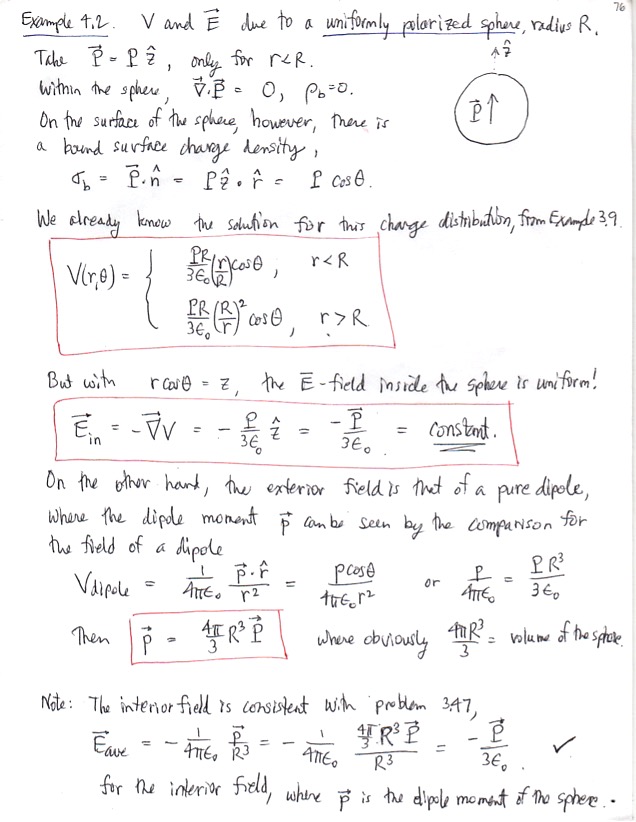 76
Example 4.2. V and E⃗ due to a uniformly polarized sphere, radius R.
Take P⃗ = P ẑ, only for r<R.
ẑ
Within the sphere, ∇⃗·P⃗ = 0, ρb=0.
P⃗↑
On the surface of the sphere, however, there is
a bound surface charge density,
σb = P⃗·n̂ = Pẑ·r̂ = P cosθ.
We already know the solution for this charge distribution, from Example 3.9.
V(r,θ) = { PR/3ε₀ (r/R) cosθ, r<R
PR/3ε₀ (R/r)² cosθ, r>R
But with r cosθ = z, the E⃗-field inside the sphere is uniform!
E⃗in = -∇⃗V = - P/3ε₀ ẑ = -P⃗/3ε₀ = constant.
On the other hand, the exterior field is that of a pure dipole,
where the dipole moment p⃗ can be seen by the comparison for
the field of a dipole
Vdipole = 1/4πε₀ p⃗·r̂/r² = pcosθ/4πε₀r² or p/4πε₀ = PR³/3ε₀
Then p⃗ = 4π/3 R³ P⃗ where obviously 4πR³/3 = volume of the sphere.
Note: The interior field is consistent with problem 3.47,
E⃗ave = - 1/4πε₀ p⃗/R³ = - 1/4πε₀ 4π/3 R³ P⃗/R³ = -P⃗/3ε₀ ✓
for the interior field, where p⃗ is the dipole moment of the sphere.